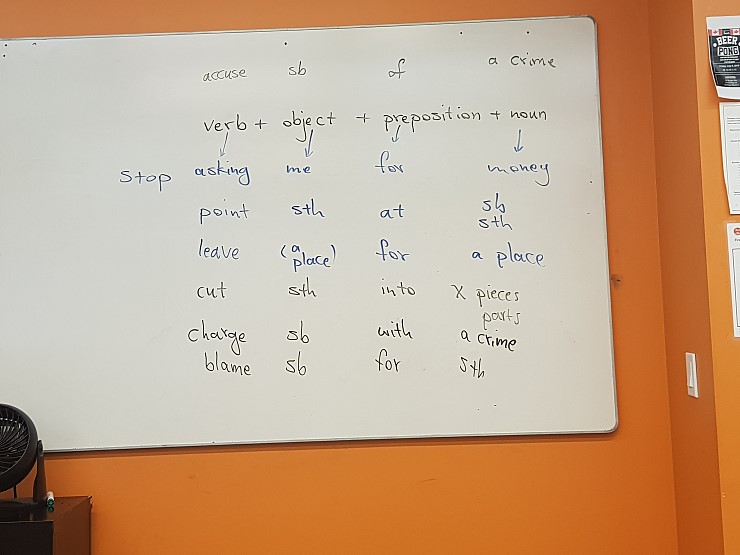 accuse sb of a crime
verb + object + preposition + noun
Stop asking me for money
point sth at sb
sth
leave (a place) for a place
cut sth into X pieces
parts
charge sb with a crime
blame sb for sth
BEER
PONG